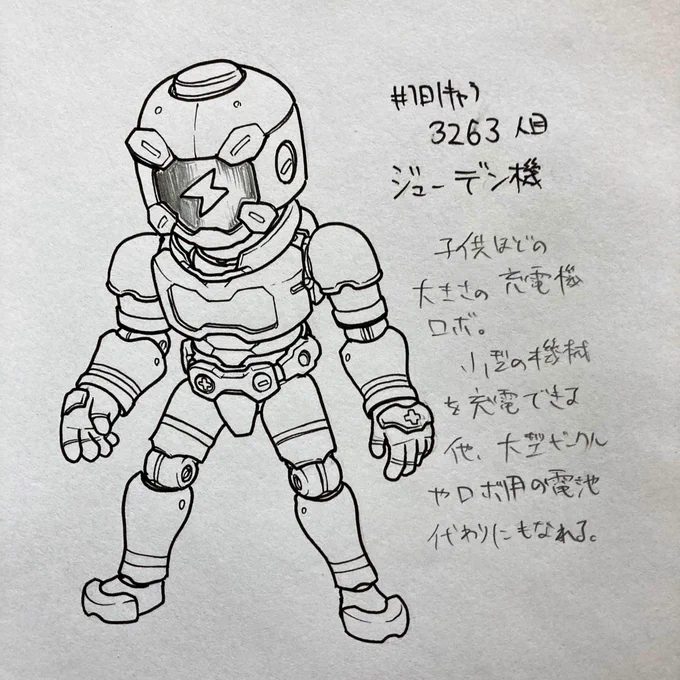 #1日1キャラ
3263人目
ジューデン機
子供ほどの
大きさの充電機
ロボ。
小型の機械
を充電できる
他、大型ビークル
やロボ用の電池
代わりにもなれる。